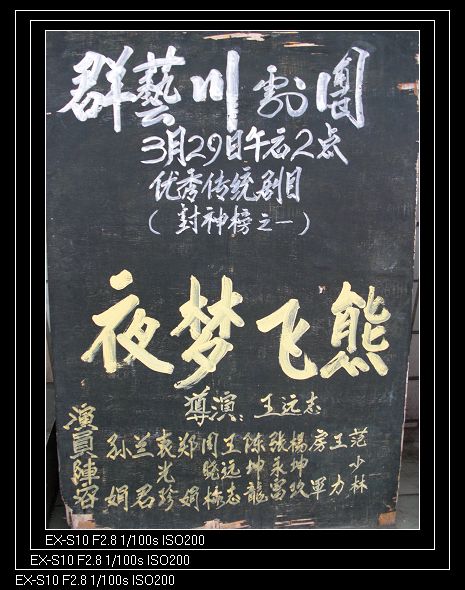 群藝川剧團
3月29日午后2点
优秀传统剧目
(封神榜之一)
夜梦飞熊
導演:王远志
演員陣容
孙娟
兰君
袁光珍
郑娟
周晓
王远志
陈坤龍
张永富
楊坤玖
房军
王力
范少林
EX-S10 F2.8 1/100s ISO200
EX-S10 F2.8 1/100s ISO200
EX-S10 F2.8 1/100s ISO200